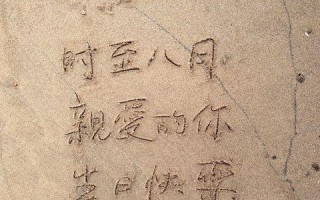 时至八月
親愛的你
生日快乐